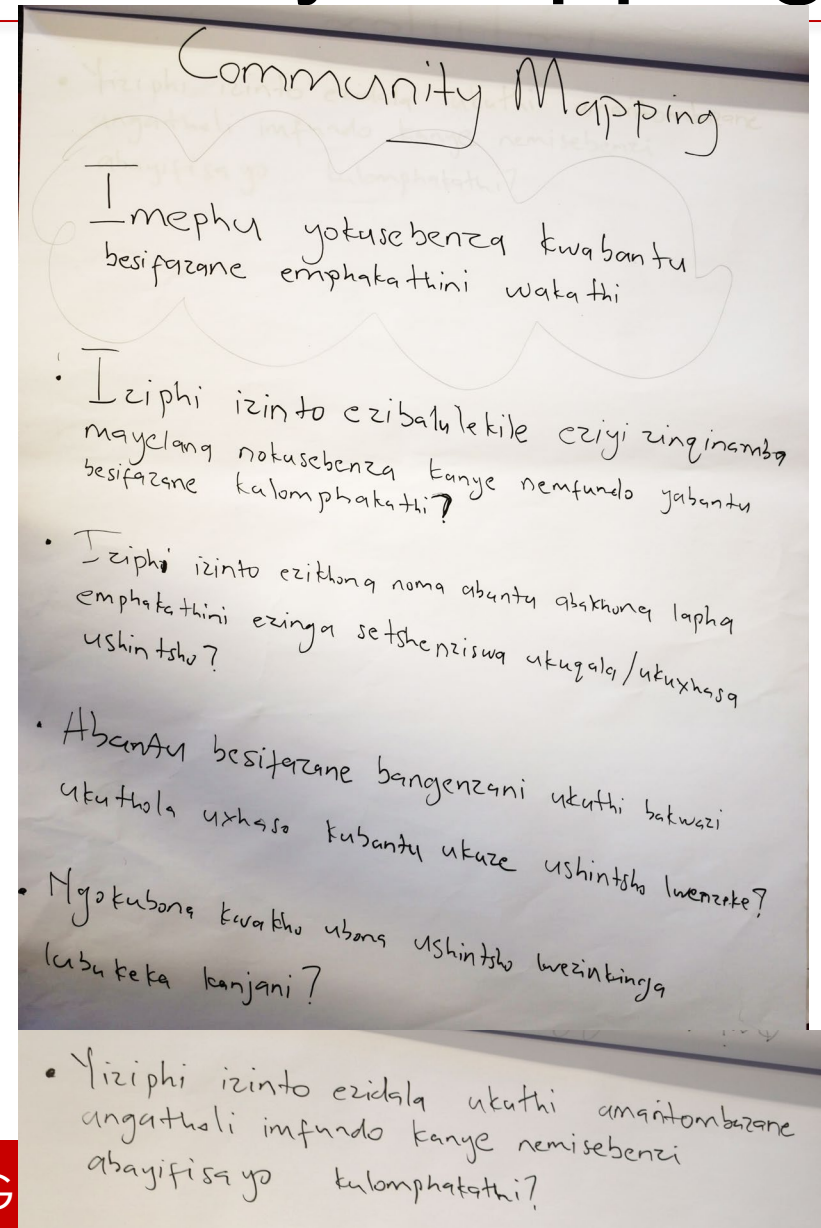 Community Mapping
Imephu yokusebenza kwabantu
besifazane emphakathini wakathi
• Iziphi izinto ezibalulekile eziyizinqinamba
mayelana nokusebenza kanye nemfundo yabantu
besifazane kulomphakathi?
• Iziphi izinto ezikhona noma abantu abakhona lapha
emphakathini ezinga setshenziswa ukuqala/ukuxhasa
ushintsho?
• Abantu besifazane bangenzani ukuthi bakwazi
ukuthola uxhaso kubantu ukuze ushintsho lwenzeke?
• Ngokubona kwakho ubona ushintsho lwezinkinga
lubukeka kanjani?
• Yiziphi izinto ezidala ukuthi amantombazane
angatholi imfundo kanye nemisebenzi
abayifisayo kulomphakathi?